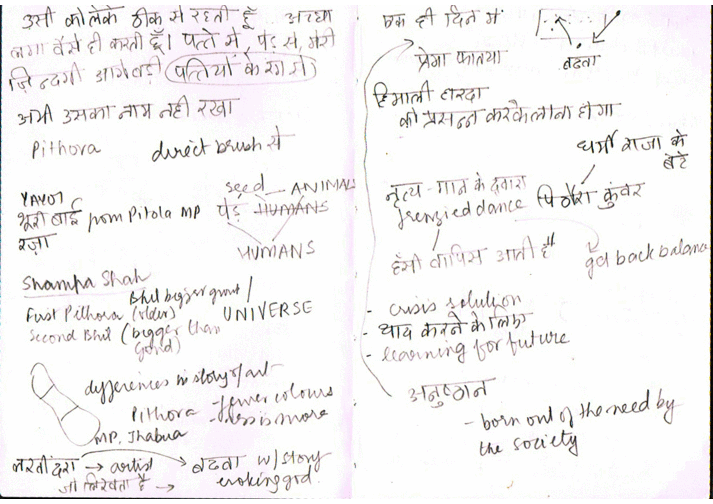 उसी को लेके ठीक से रहती हूँ अच्छा
लगा वैसे ही करती हूँ। पत्ते से, पेड़ से, मेरी
ज़िन्दगी आगे बड़ी पत्तियों के रंग से
अभी उसका नाम नही रखा
Pithora direct brush से
भूरी बाई from Pitola MP
रज़ा
seed — ANIMALS
पेड़ HUMANS
HUMANS
Shampa Shah
Bhil bigger
First Pithora (older)
UNIVERSE
Second Bhil (bigger than
Gond)
differences in story of art
Pithora - fewer colours
- less is more
MP, Jhabua
→ artist → बढता w/ story
जो लिखता है → evoking god.
एक ही दिन में
बढता
को प्रसन्न करके लाना होगा
धर्मी राजा के
बेटे
नृत्य - गान के द्वारा
frenzied dance
पिठौरा कुंवर
हँसी वापिस आती है
get back balance
- crisis solution
- याद करने के लिए
- learning for future
अनुष्ठान
- born out of the need by
the society